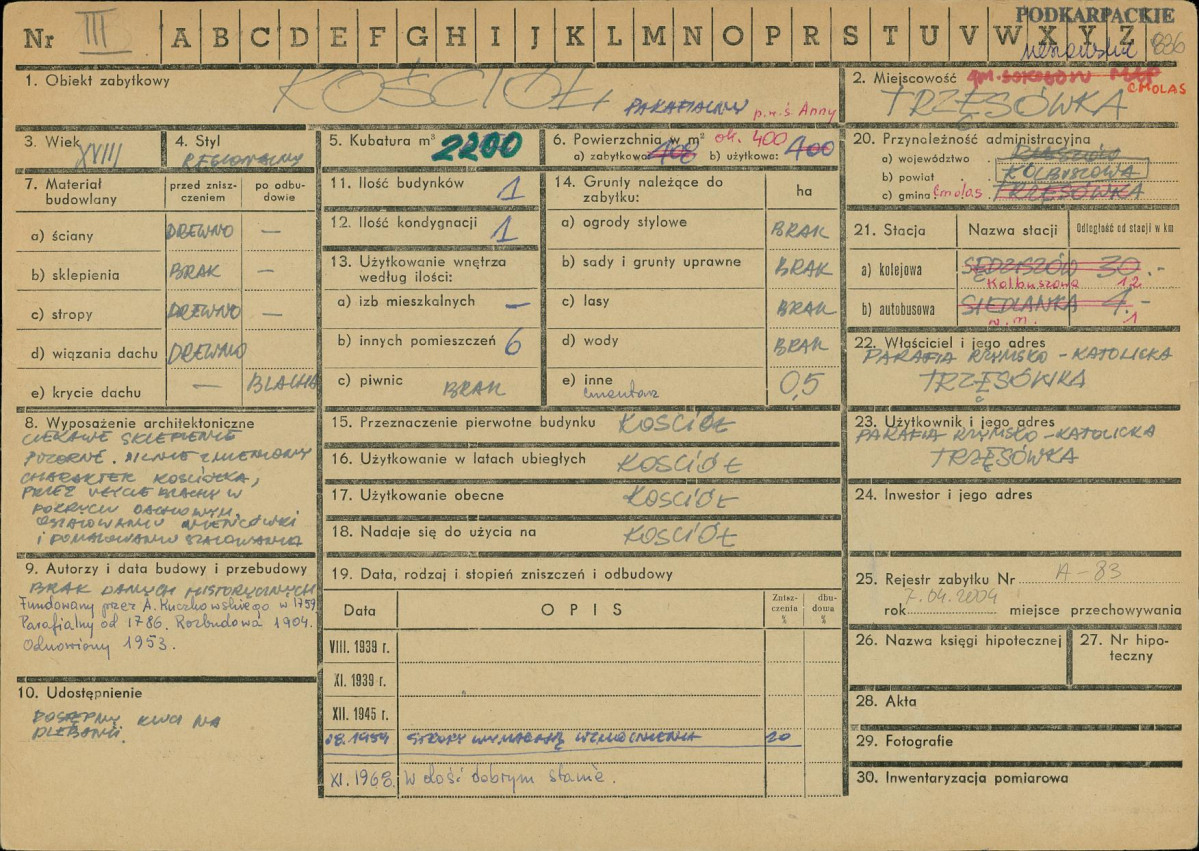 PODKARPACKIE
Nr III A B C D E F G H I J K L M N O P R S T U V W X Y Z
836
1. Obiekt zabytkowy KOŚCIÓŁ PARAFIALNY p.w.ś. Anny
2. Miejscowość gm. SOKOŁÓW MŁP CMOLAS
TRZĘSÓWKA
3. Wiek XVIII
4. Styl REGIONALNY
5. Kubatura m³ 2200
6. Powierzchnia w m² ok. 400
a) zabytkowa: 408 b) użytkowa: 400
7. Materiał budowlany
przed zniszczeniem
po odbudowie
a) ściany DREWNO —
b) sklepienia BRAK —
c) stropy DREWNO —
d) wiązania dachu DREWNO
e) krycie dachu — BLACHA
8. Wyposażenie architektoniczne
CIEKAWE SKLEPIENIE
POZORNE. SILNIE ZMIENIONY
CHARAKTER KOŚCIÓŁKA,
PRZEZ UŻYCIE BLACHY W
POKRYCIU DACHOWYM,
OSZALOWANIU
I POMALOWANIU SZALOWANIA
9. Autorzy i data budowy i przebudowy
BRAK DANYCH HISTORYCZNYCH
Fundowany przez A. Kuczkowskiego w 1759
Parafialny od 1786. Rozbudowa 1904.
Odnowiony 1953.
10. Udostępnienie
DOSTĘPNY KLUCZ NA
PLEBANII.
11. Ilość budynków 1
12. Ilość kondygnacji 1
13. Użytkowanie wnętrza według ilości:
a) izb mieszkalnych —
b) innych pomieszczeń 6
c) piwnic BRAK
14. Grunty należące do zabytku: ha
a) ogrody stylowe BRAK
b) sady i grunty uprawne BRAK
c) lasy BRAK
d) wody BRAK
e) inne cmentarz 0,5
15. Przeznaczenie pierwotne budynku KOŚCIÓŁ
16. Użytkowanie w latach ubiegłych KOŚCIÓŁ
17. Użytkowanie obecne KOŚCIÓŁ
18. Nadaje się do użycia na KOŚCIÓŁ
19. Data, rodzaj i stopień zniszczeń i odbudowy
Data OPIS Zniszczenia % odbudowa %
VIII. 1939 r.
XI. 1939 r.
XII. 1945 r.
08.1959 STROPY WYMAGAJĄ WZMOCNIENIA 20
XI. 1968. W dość dobrym stanie.
20. Przynależność administracyjna
a) województwo RZESZÓW
b) powiat KOLBUSZOWA
c) gmina Cmolas TRZĘSÓWKA
21. Stacja Nazwa stacji Odległość od stacji w km
a) kolejowa SĘDZISZÓW 30.-
Kolbuszowa 12
b) autobusowa SIEDLANKA 4.-
w m. 1
22. Właściciel i jego adres
PARAFIA RZYMSKO-KATOLICKA
TRZĘSÓWKA
23. Użytkownik i jego adres
PARAFIA RZYMSKO-KATOLICKA
TRZĘSÓWKA
24. Inwestor i jego adres
25. Rejestr zabytku Nr A-83
rok 7.04.2004 miejsce przechowywania
26. Nazwa księgi hipotecznej
27. Nr hipoteczny
28. Akta
29. Fotografie
30. Inwentaryzacja pomiarowa